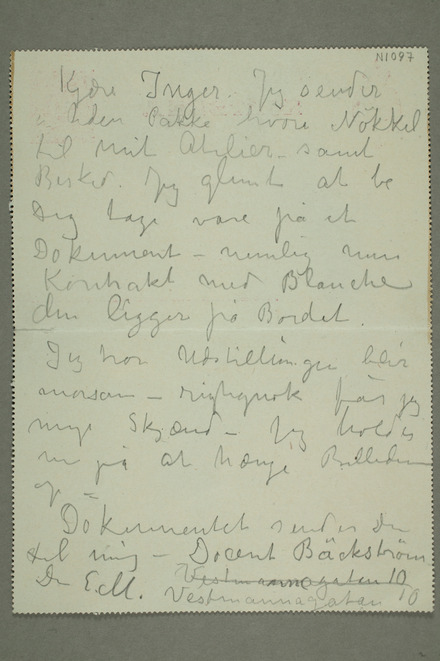 N1097
Kjære Inger. Jeg sender
i den Pakke hvori Nökkel
til mit Atelier – samt
Besked. Jeg glemt at be
Dig tage vare på et
Dokument – nemlig min
Kontrakt med Blanche
den ligger på Bordet.
Jeg tror Udstillingen blir
morsom – rigtignok får jeg
mye Skjænd – Jeg holder
nu på at hænge Billederne
op –
Dokumentet sendes Du
til mig – Docent Bäckström
Din E.M. Vestmannagatan 10
Vestmannagatan 10